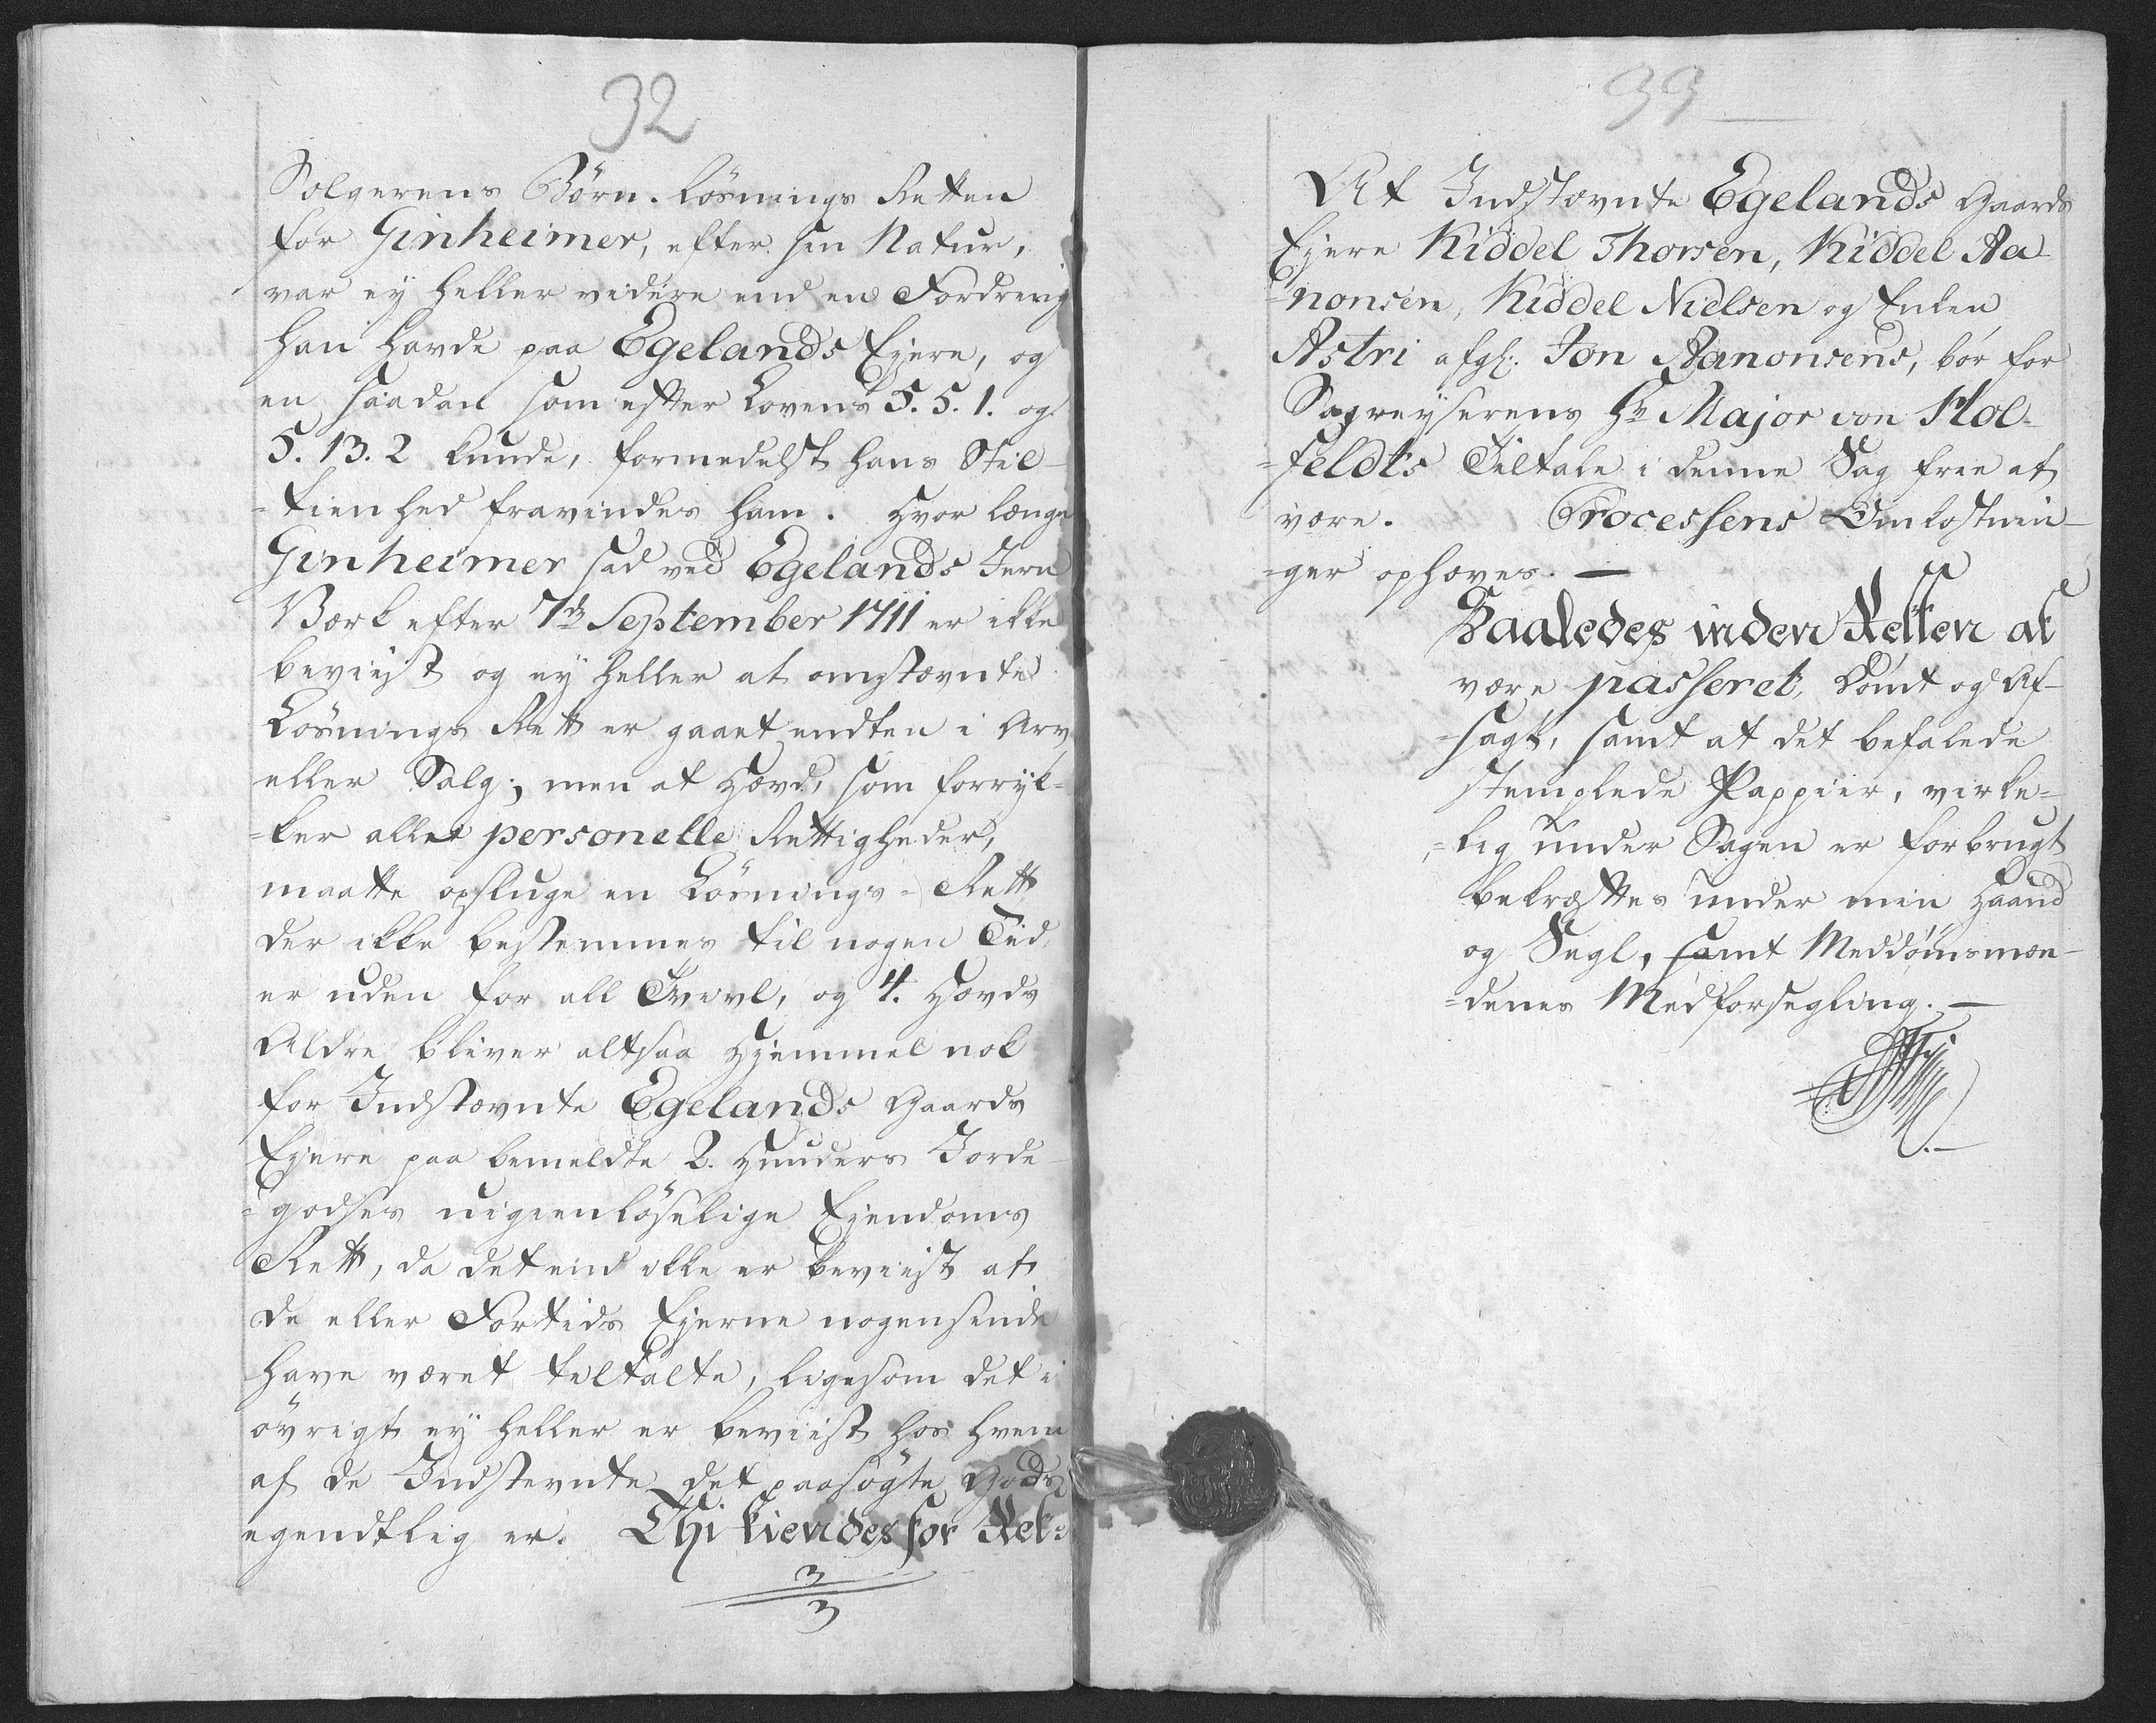 32
Sælgerens Börn. Lösnings Retten
for Ginheimer, efter sin Natur,
var ey heller videre end en Fordring
han havde paa Egelands Ejere, og
en saadan som efter Lovens 5. 5. 1. og
5. 13. 2 kunde, formedelst hans Stil-
=tienhed fravindes ham. Hvor længe
Ginheimer sad ved Egelands Jern
Værk efter 7de September 1711 er ikke
beviist og ey heller at omstævnte
Lösnings Rett er gaaet endten i Arv
eller Salg; men at Hævd, som forryk-
=ker allet personelle Rettigheder,
maatte opsluge en Lösnings=Rett
der ikke bestemmes til nogen Tiid,
er uden for all Tvivl, og 4. Hævds
Aldre bliver altsaa Hjemmel nok
for Indstævnte Egelands Gaards
Ejere paa bemeldte 2. Hunders Jorde-
=godses uigienlöselige Ejendoms
Rett, da det end ikke er beviist at
de eller Fortids Ejerne nogensinde
have været tiltalte, ligesom det i
övrigt ey heller er beviist hos hvem
af de Indstevnte det paasögte Gods
egendtlig er. Thi kiendes for Ret:
3
3
33
At Indstævnte Egelands Gaards
Ejere Kiddel Thorsen, Kiddel Aa-
=nonsen, Kiddel Nielsen og Enken
Astri afgl: Jon Aanonsens, bör for
Sagreyserens Hr Major von Hol-
=feldts Tiltale i denne Sag frie at
være. Processens Omkostnin-
=ger ophæves. —
Saaledes inden Retten at
være passeret, Dömt og Af-
=sagt, samt at det befalede
stemplede Pappiir, virke=
=lig under Sagen er forbrugt
bekræftes under min Haand
og Segl, samt Meddömsmæn-
=denes Medforsegling. —